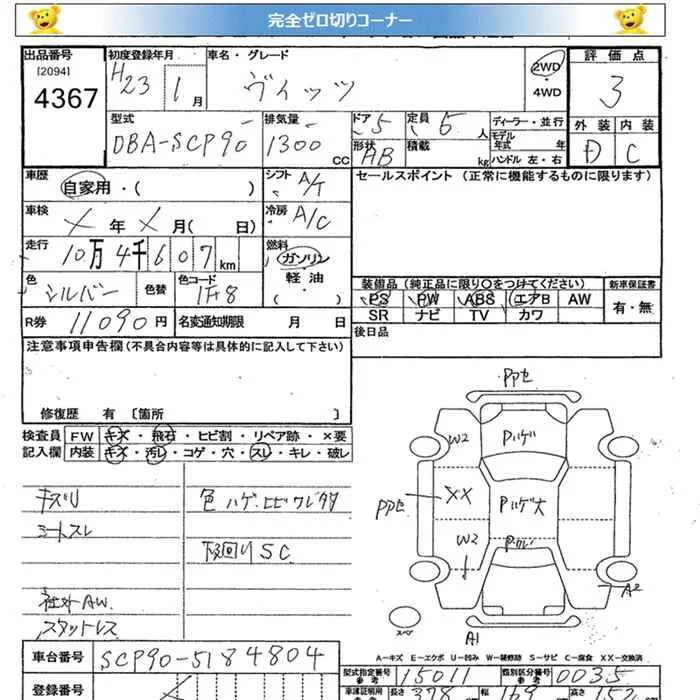 完全ゼロ切りコーナー
出品番号 初度登録年月 車名・グレード 2WD 評価点
[2094] H23 1月 ヴィッツ ・4WD 3
4367
型式 排気量 ドア 5 定員 5人 ディーラー・並行 外装 内装
DBA-SCP90 1300cc 形状 AB 積載 kg モデル年式 年 D C
ハンドル 左・右
車歴 シフト A/T セールスポイント (正常に機能するものに限ります)
自家用・( )
車検 冷房 A/C
X年X月( 日)
走行 燃料
10万4千607km ガソリン
色 色替 色コード 軽油
シルバー 1F8 ・( )
装備品(純正品に限り○をつけてください) 新車保証書
PS PW ABS エアB AW 有・無
SR ナビ TV カワ
R券 11090円 名変通知期限 月 日
後日品
注意事項申告欄(不具合内容等は具体的に記入して下さい)
修復歴 有 〔箇所 〕
検査員 FW キズ・飛石・ヒビ割・リペア跡・×要
記入欄 内装 キズ・汚レ・コゲ・穴・スレ・キレ・破レ
キズU 色ハゲ、ヒビワレ多
シートスレ
下回りSC
社外AW
スタットレス
PPセ
W2 Pハゲ
PPセ XX Pハゲ大
W2 Pハゲ
A2
スペア A1
A—キズ E—エクボ U—凹み W—補修跡 S—サビ C—腐食 XX—交換済
車台番号 SCP90-5184804
型式指定番号 参考 15011 類別区分番号 参考 0035
登録番号
車庫証明用 参考 長さ 378 幅 169 高さ 152